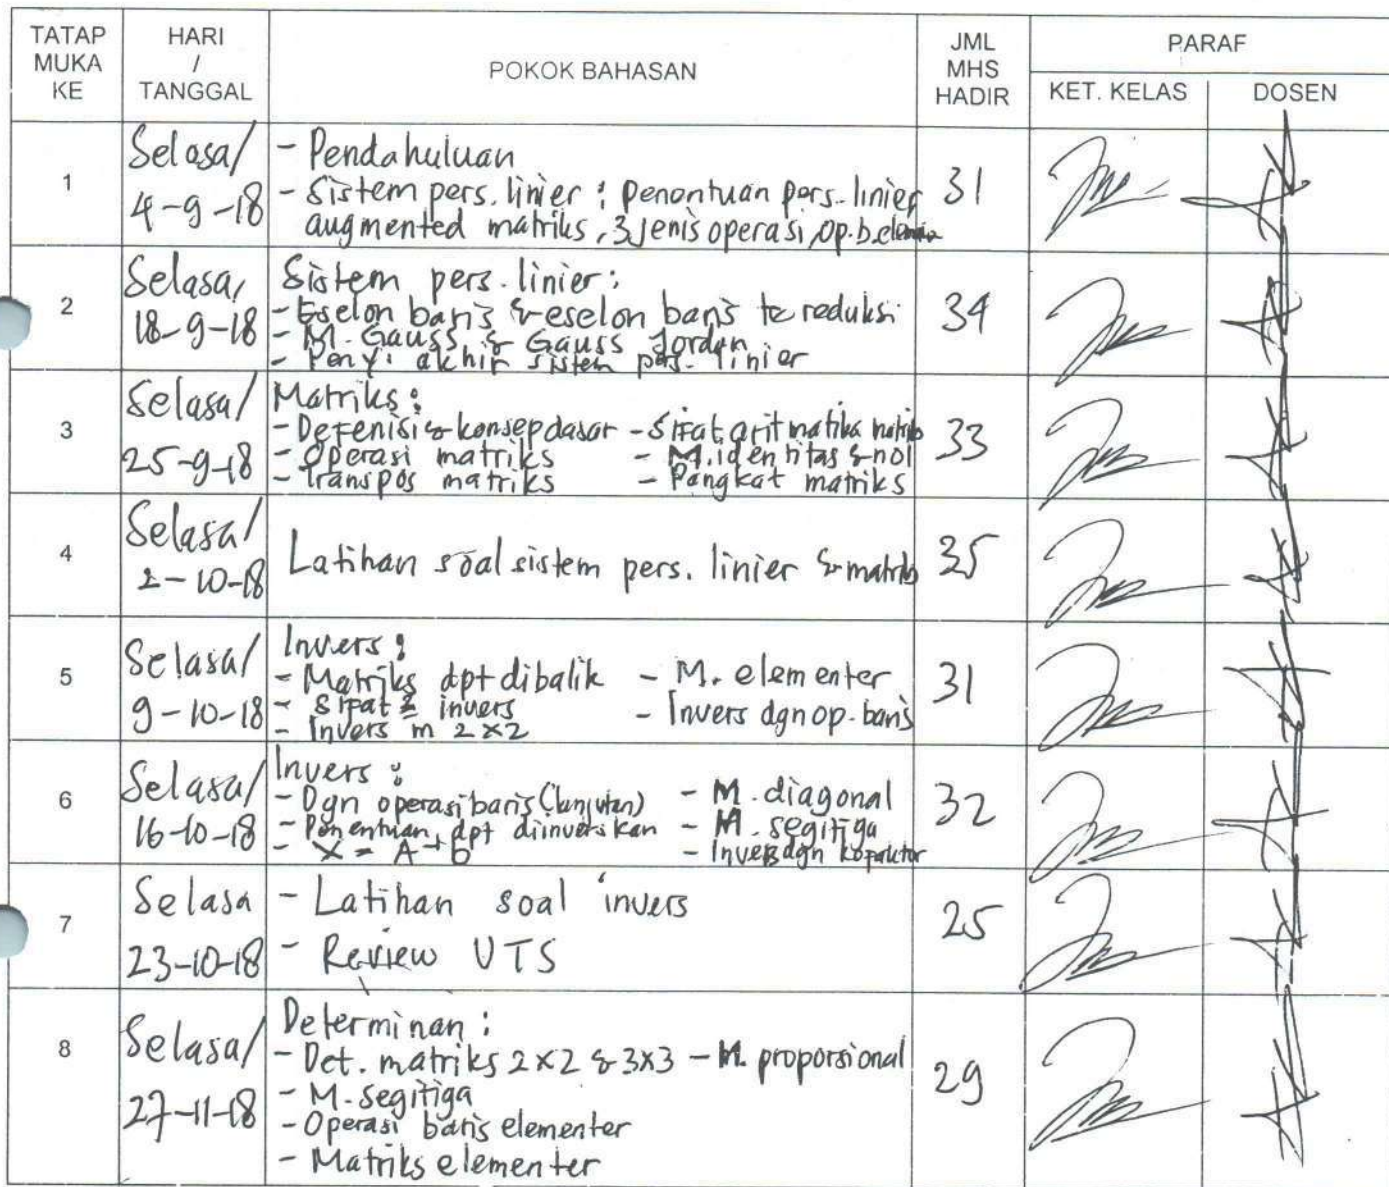 TATAP MUKA KE
HARI / TANGGAL
POKOK BAHASAN
JML MHS HADIR
PARAF
KET. KELAS
DOSEN
1
Selasa/
4-9-18
- Pendahuluan
- Sistem pers. linier : penentuan pers. linier
augmented matriks, 3 jenis operasi, op. b.
31
2
Selasa,
18-9-18
Sistem pers. linier :
- Eselon baris & eselon baris tereduksi
- M. Gauss & Gauss Jordan
- Peny. akhir sistem pers. linier
34
3
Selasa/
25-9-18
Matriks :
- Defenisi & konsep dasar - Sifat aritmatika matriks
- Operasi matriks - M. identitas & nol
- Transpos matriks - Pangkat matriks
33
4
Selasa/
2-10-18
Latihan soal sistem pers. linier & matriks
35
5
Selasa/
9-10-18
Invers :
- Matriks dpt dibalik - M. elementer
- Sifat2 invers - Invers dgn op. baris
- Invers m 2x2
31
6
Selasa/
16-10-18
Invers :
- Dgn operasi baris (lanjutan) - M. diagonal
- Penentuan dpt diinverskan - M. segitiga
- X = A⁻¹ b - Invers dgn kofaktor
32
7
Selasa
23-10-18
- Latihan soal invers
- Review UTS
25
8
Selasa/
27-11-18
Determinan :
- Det. matriks 2x2 & 3x3 - M. proporsional
- M. segitiga
- Operasi baris elementer
- Matriks elementer
29